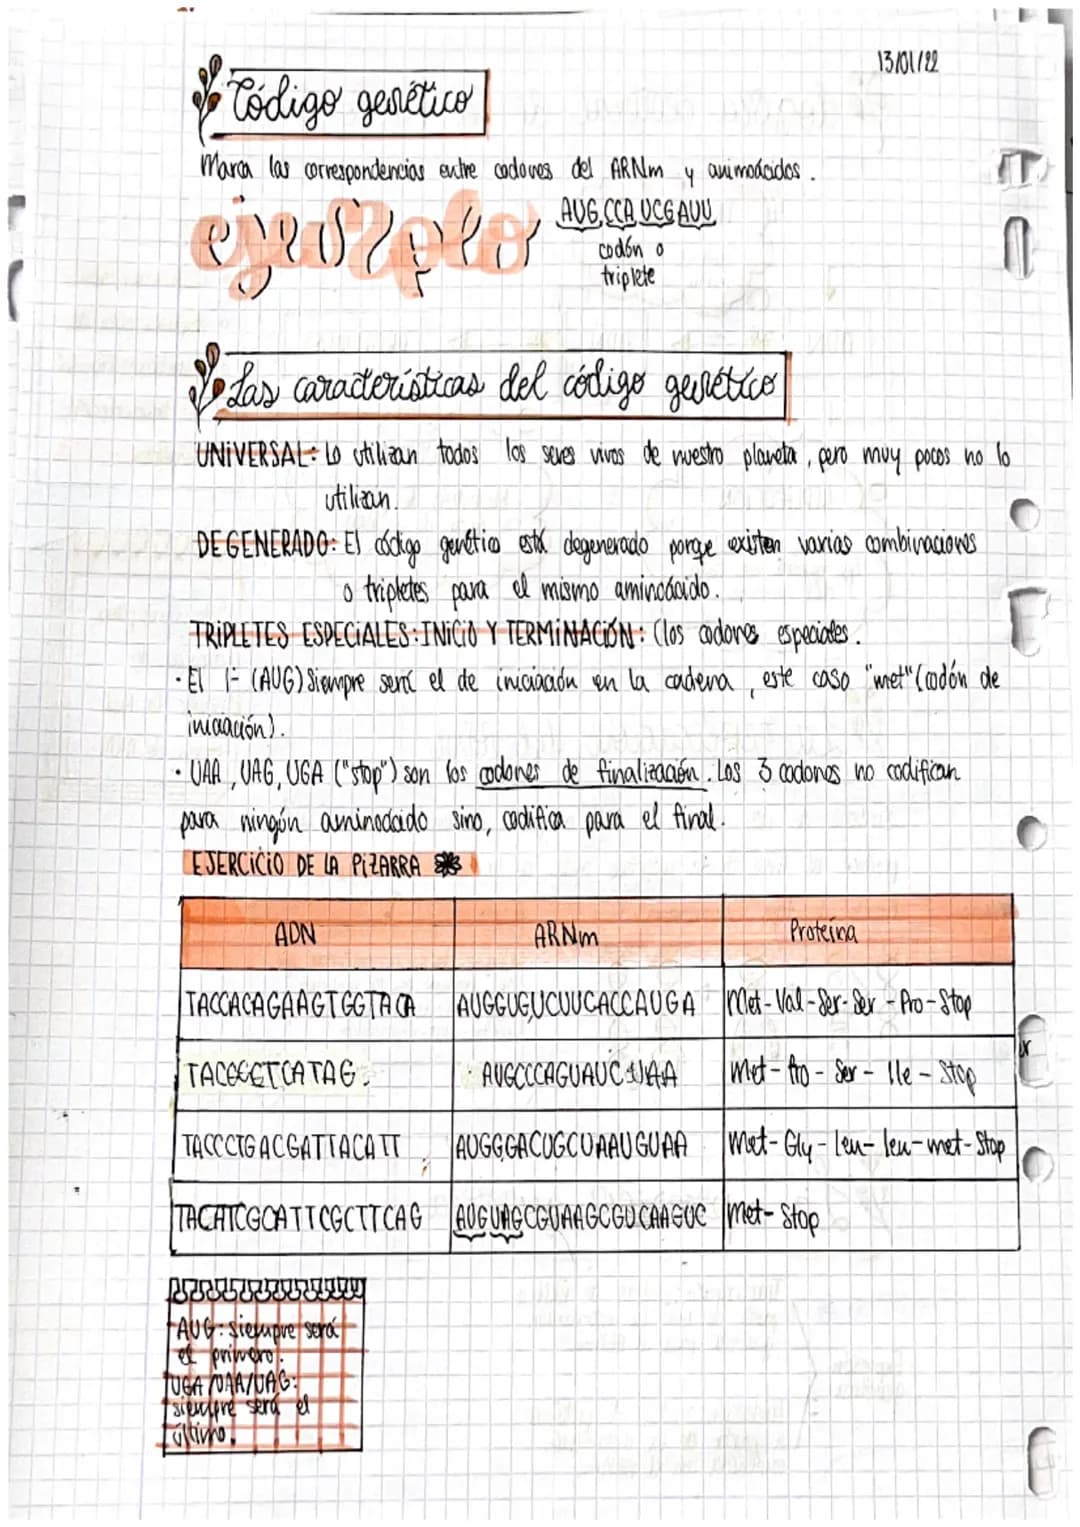 13/01/22
Código genético
Marca las correspondencias entre codones del ARNm y aminoácidos.
ejemplo
AUG,CCA UCG AUU
codón o
triplete
Las características del código genético
UNIVERSAL: Lo utilizan todos los seres vivos de nuestro planeta, pero muy pocos no lo
utilizan.
DEGENERADO: El código genético está degenerado porqe existen varias combinaciones
o tripletes para el mismo aminoácido.
TRIPLETES ESPECIALES: INICIO Y TERMINACIÓN: (los codones especiales.
· El 1- (AUG) Siempre será el de iniciación en la cadena, este caso "met" (codón de
iniciación).
· UAA, UAG, UGA ("stop") son los codones de finalización. Los 3 codones no codifican
para ningún aminoácido sino, codifica para el final.
EJERCICIO DE LA PIZARRA
ADN ARNm Proteína
TACCACAGAAGTGGTACA AUGGUGUCUUCACCAUGA Met-Val-Ser-Ser-Pro-Stop
AUGCCCAGUAUC UAA Met-Pro-Ser-Ile-Stop
TACCCTGACGATTACATT AUGGGACUGCUAAUGUAA Met-Gly-Leu-leu-met-Stop
TACATCGCATTCGCTTCAG AUGUAGCGUAAGCGUCAAGUC Met-Stop
AUG: siempre será
el primero.
UGA/UAA/UAG:
siempre será el
último.